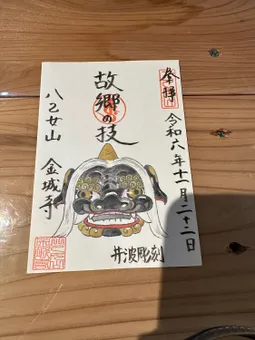 奉拝
令和六年十一月二十二日
故郷の技
八乙女山
金城寺
井波彫刻